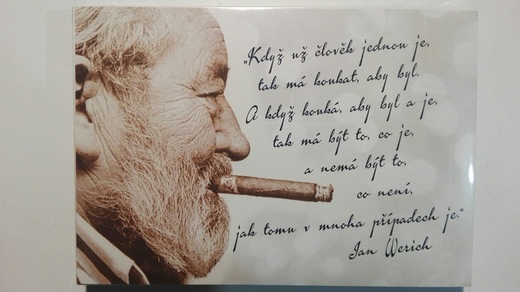 „Když už člověk jednou je,
tak má koukat, aby byl.
A když kouká, aby byl a je,
tak má být to, co je,
a nemá být to,
co není,
jak tomu v mnoha případech je.“
Jan Werich